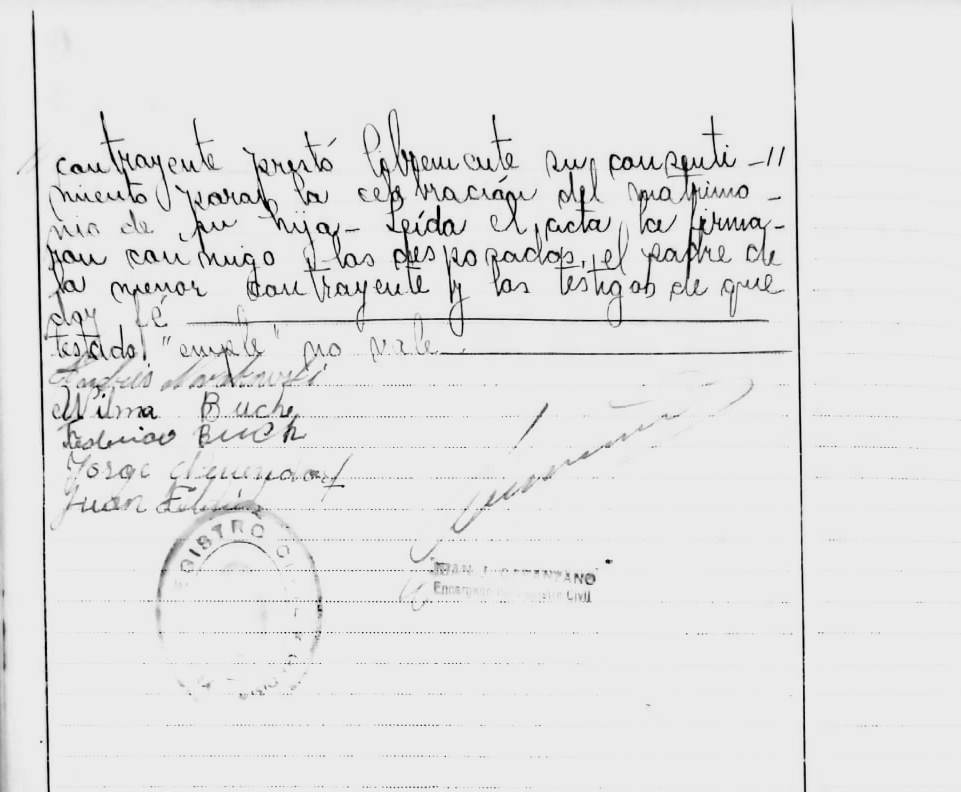 contrayente prestó libremente su consenti-//
miento para la celebración del matrimo-
nio de su hija.- Leída el acta la firma-
ron conmigo los desposados, el padre de
la menor contrayente y los testigos de que
doy fé
testado: "emple" no vale
Wilma Buch
Federico Buch
Jorge
Juan
REGISTRO CIVIL
JUAN J. CARANZANO
Encargado del Registro Civil